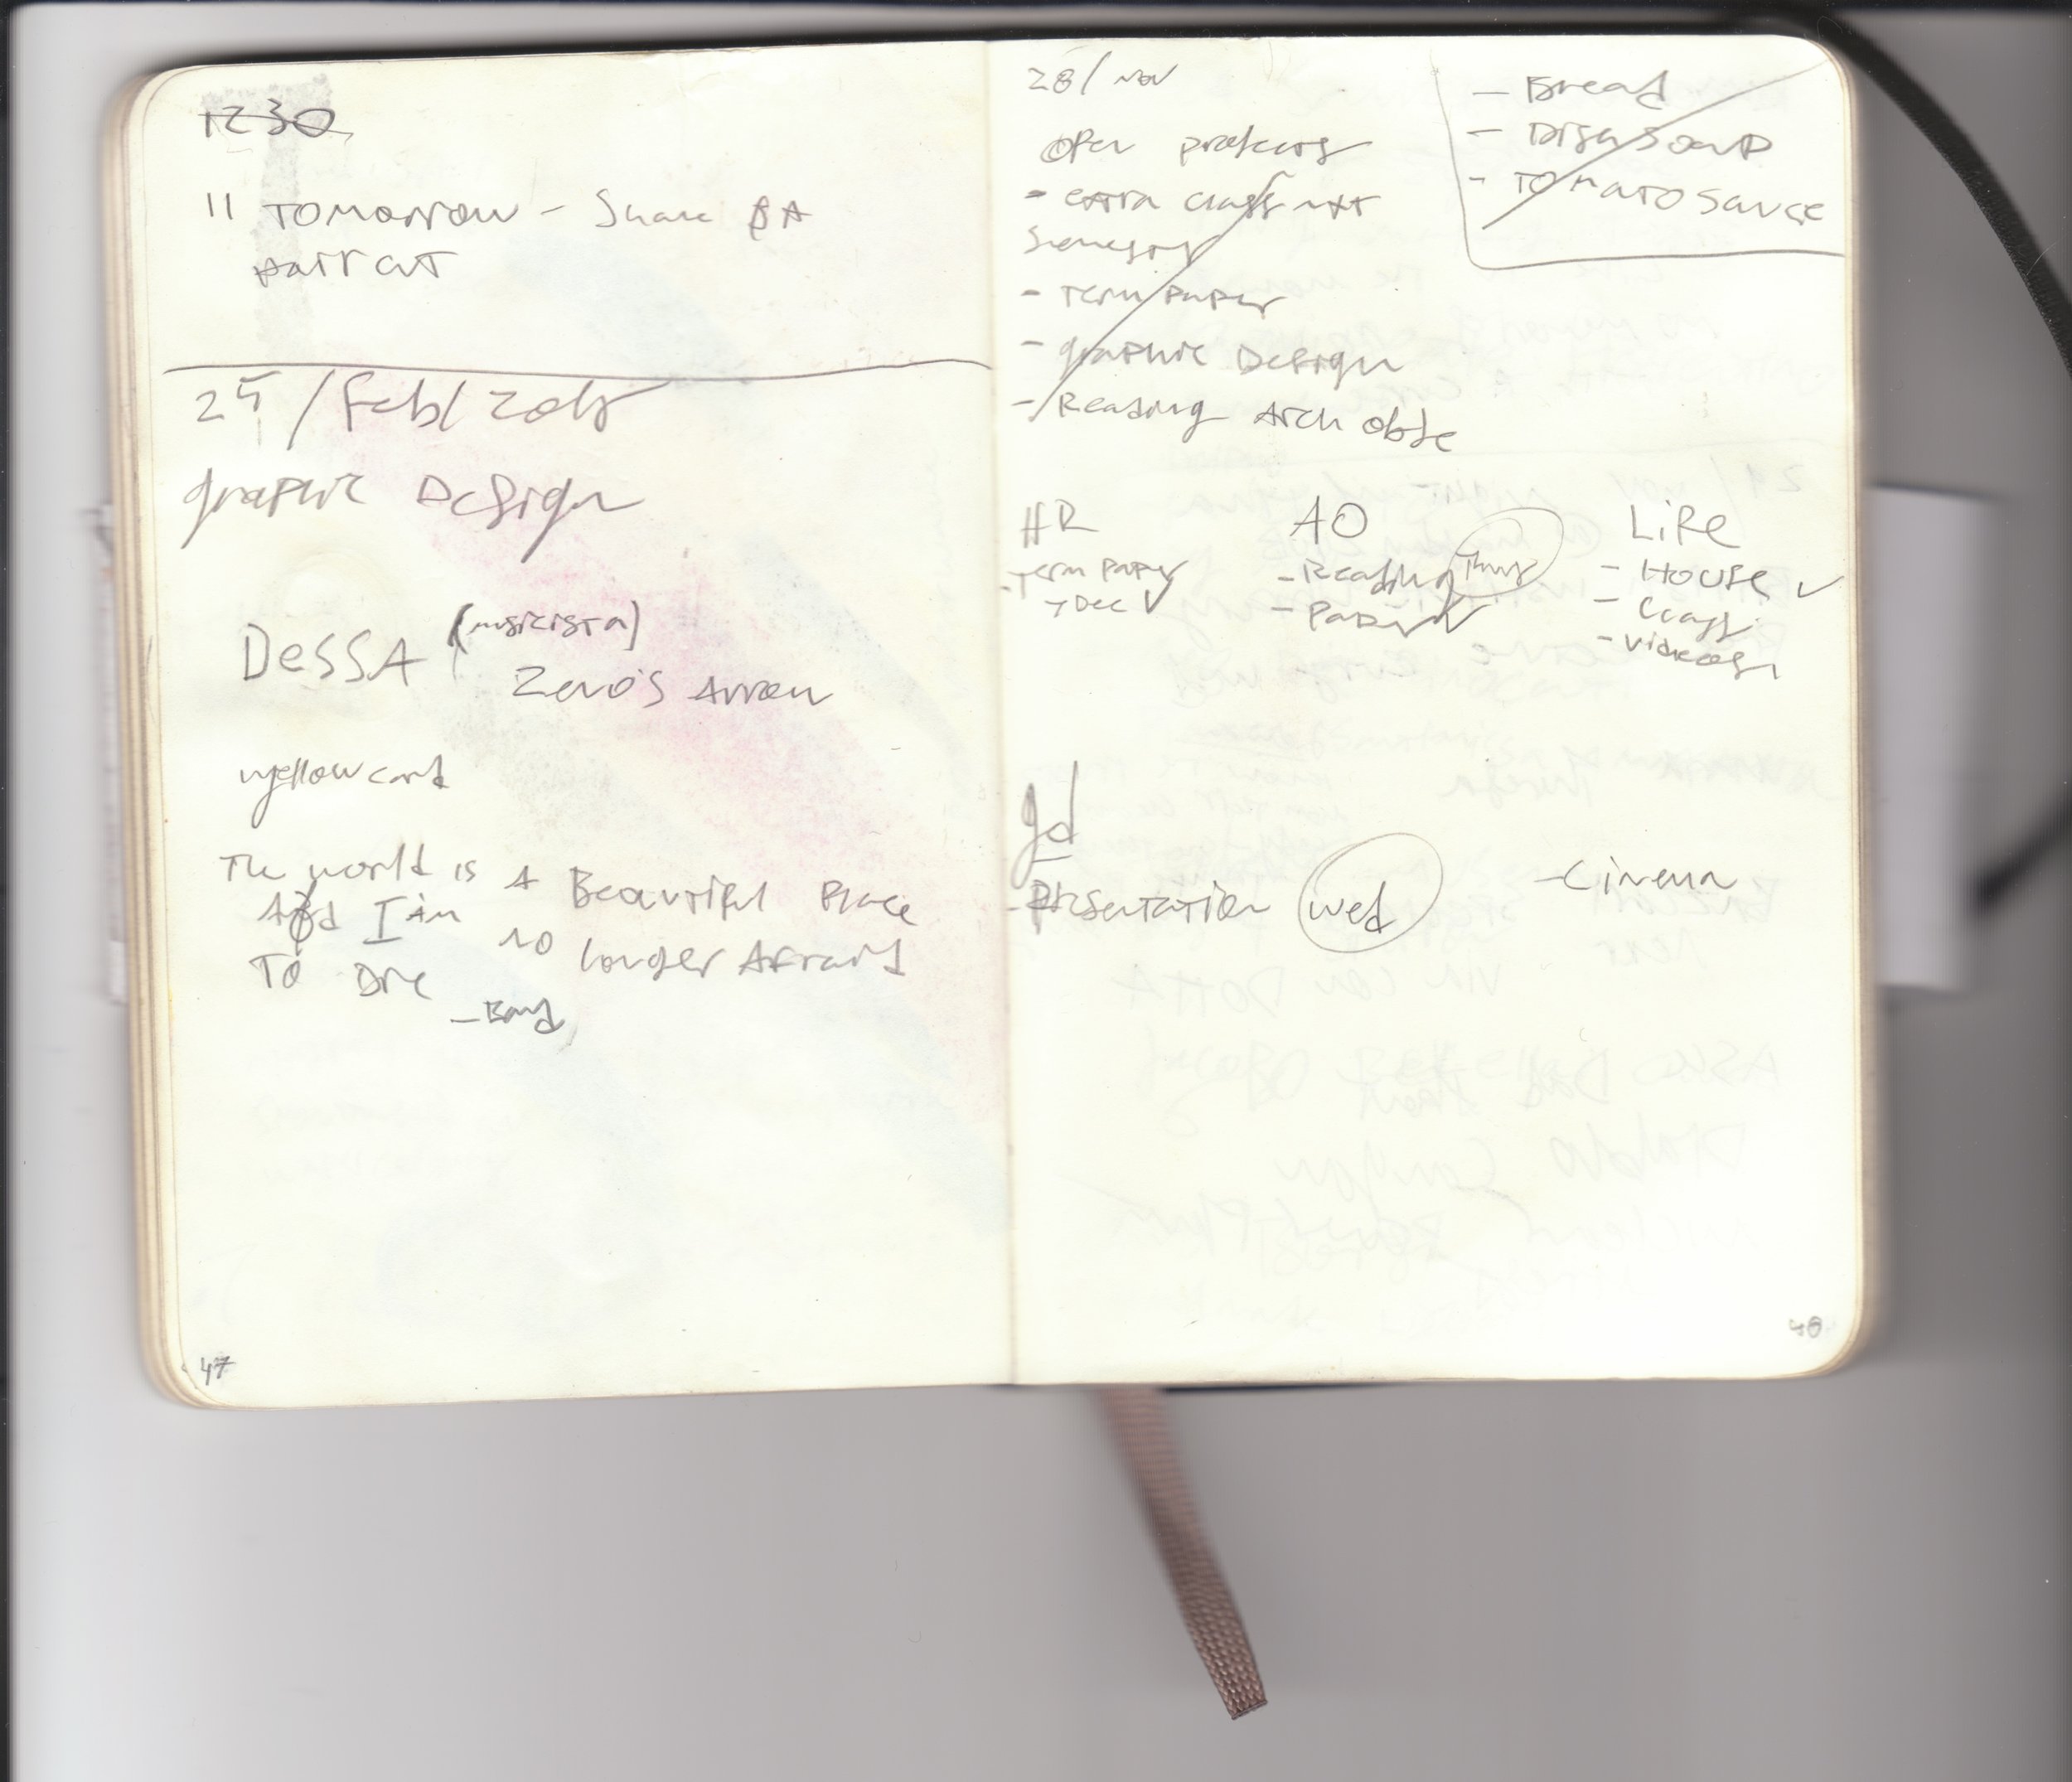 1230
11 Tomorrow -
Haircut
25 / Feb /
graphic Design
DeSSA (musicista)
Zeno's Arrow
yellowcard
The world is A Beautiful Place
And I am no longer Afraid
To Die
- Band
47
28/ Nov
Open
- extra class next
Semester
- Term Paper
- graphic Design
- Reading Arch
- Bread
- Dish Soap
- Tomato Sauce
HR
- Term Paper
7 Dec
AO
- Reading Thurs
- Paper
LiFe
- House
- Class
- videos
gd
- Presentation wed
- Cinema
48